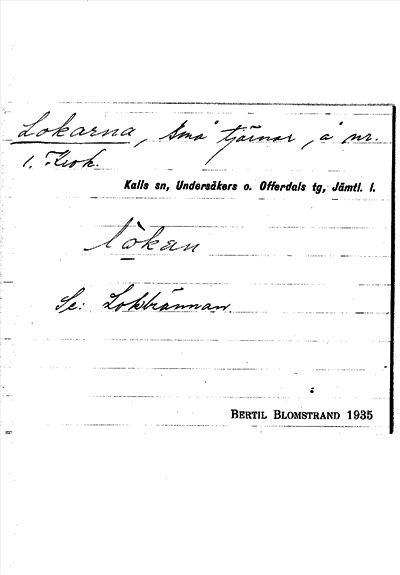 Lokarna, små tjärnar, å nr.
1. Krok.
Kalls sn, Undersåkers o. Offerdals tg, Jämtl. l.
lo̱kan
Se: Lokbrännan.
BERTIL BLOMSTRAND 1935